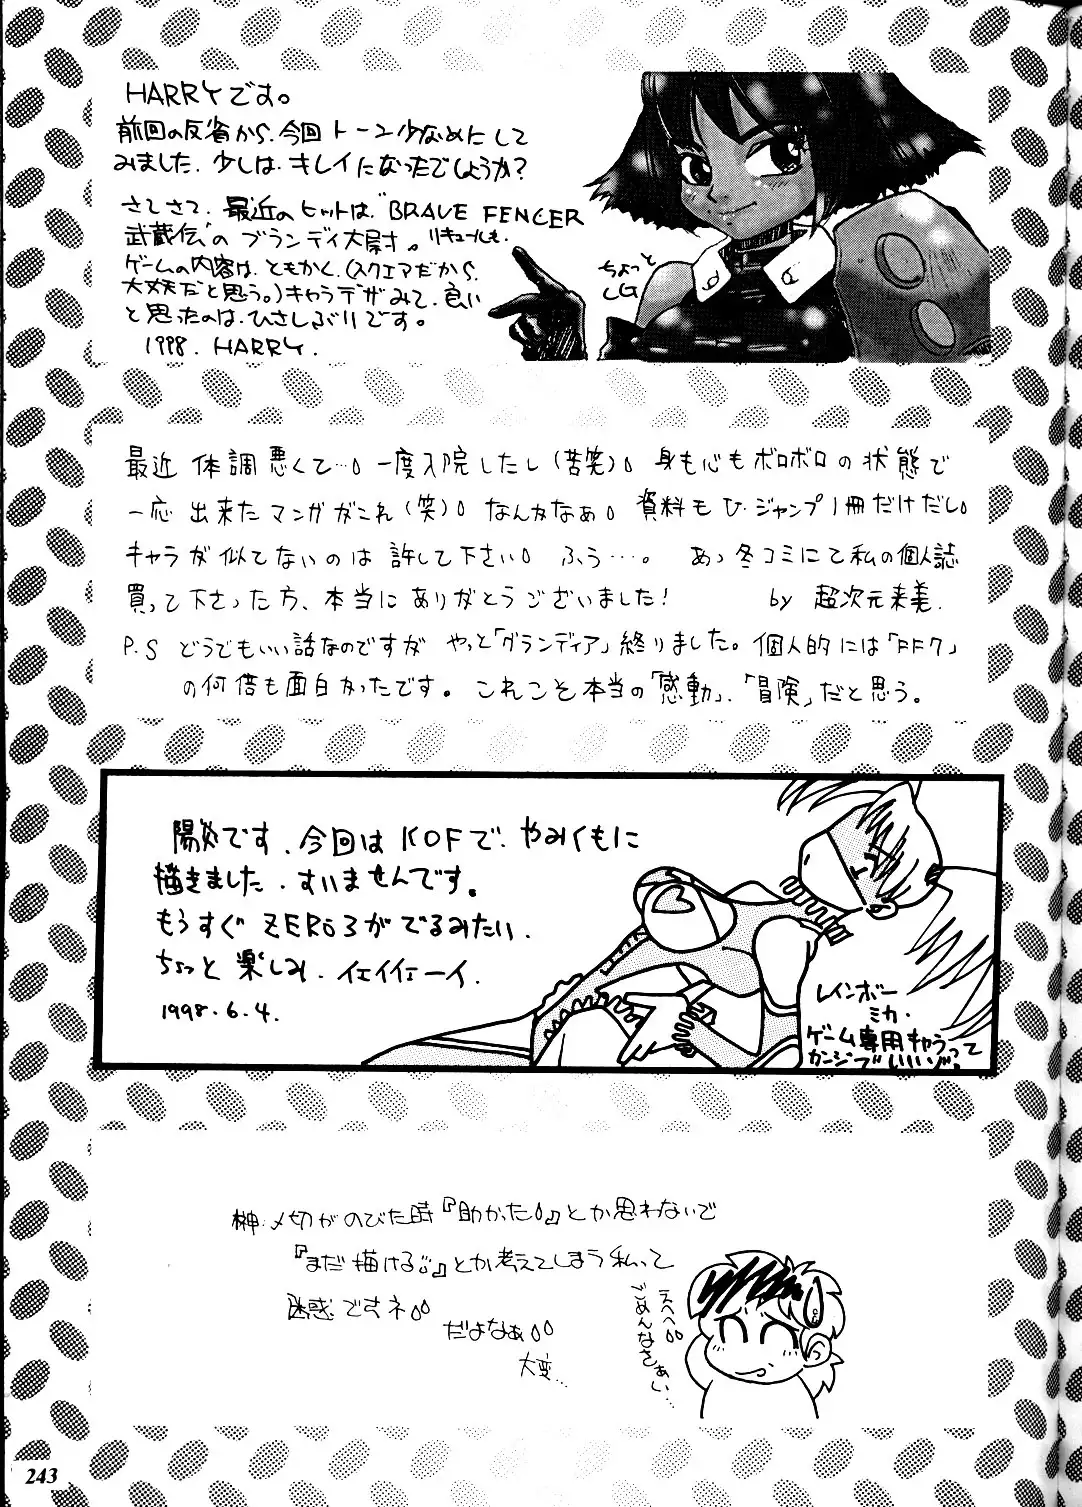 HARRYです。
前回の反省から、今回トーン少なめにして
みました、少しは、キレイになったでしょうか?
さしさて、最近のヒットは、"BRAVE FENCER
武蔵伝"の ブランディ大尉。リキュールも、
ゲームの内容は、ともかく、(スクエアだから、
大丈夫だと思う。)キャラデザみて、良い
と思ったのは、ひさしぶりです。
1998. HARRY.
ちょっと
CG
最近 体調 悪くて…。一度入院したし(苦笑)。身も心もボロボロの状態で
一応 出来たマンガがこれ(笑)。なんかなぁ。資料もVジャンプ1冊だけだし。
キャラが似てないのは許して下さい。ふう…。あっ冬コミにて私の個人誌
買って下さった方、本当にありがとうございました! by 超次元来美.
P.S どうでもいい話なのですが やっと「グランディア」終りました。個人的には「FF7」
の何倍も面白かったです。これこそ本当の「感動」、「冒険」だと思う。
陽炎です、今回はKOFで、やみくもに
描きました、すいませんです。
もうすぐZERO3がでるみたい、
ちょっと楽しみ、イエイイエーイ.
1998.6.4.
レインボー
ミカ・
ゲーム専用キャラって
カンジでいいゾ。
榊:〆切がのびた時『助かった。』とか思わないで
『まだ描ける。』とか考えてしまう私って
迷惑ですネ。
だよなぁ。
大変…
えへへ。
ごめんなさぁい…
243